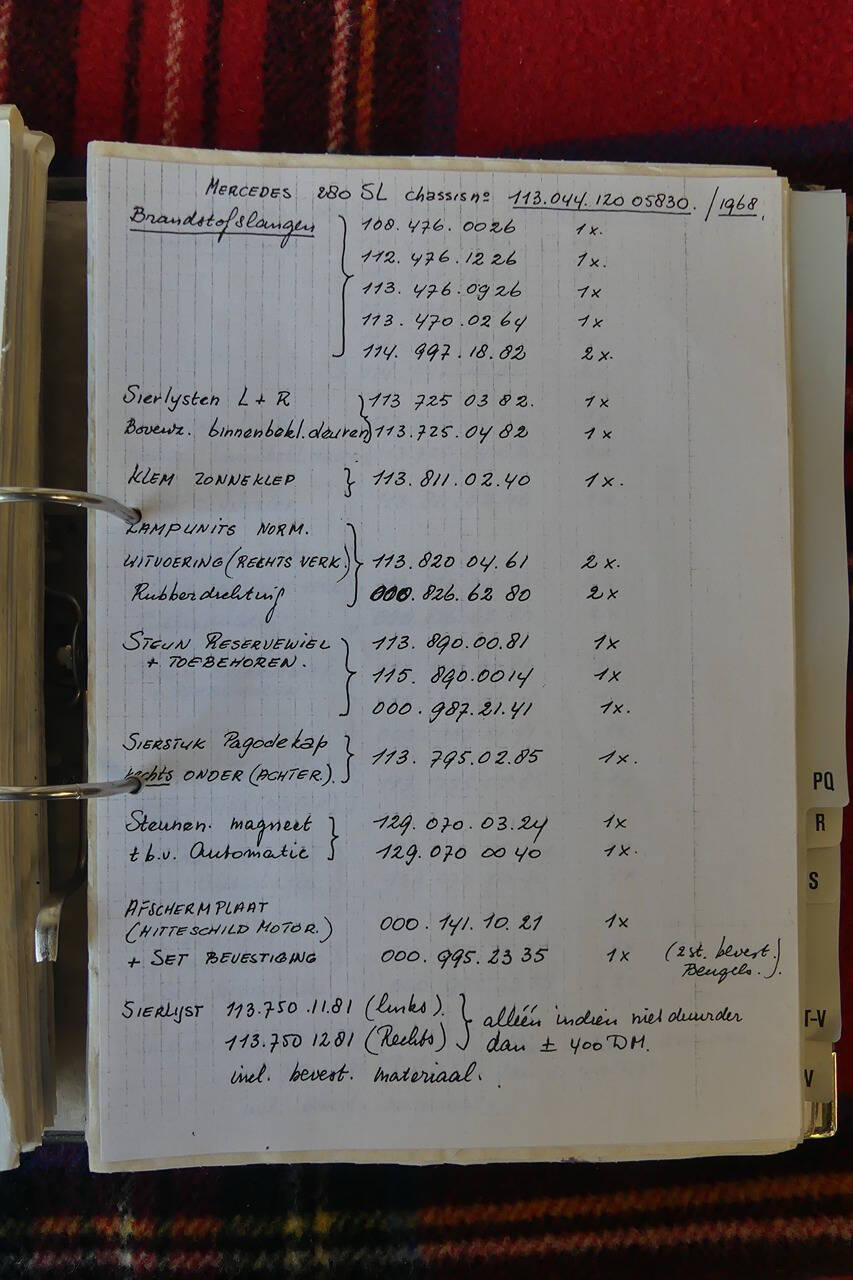 MERCEDES 280 SL chassisnº 113.044.120 05830. / 1968.
Brandstofslangen } 108. 476. 0026 1x.
112. 476. 12 26 1x.
113. 476. 0926 1x
113. 470. 02 64 1x
114. 997. 18. 82 2x.
Sierlysten L + R } 113 725 03 82. 1x
Bovenz. binnenbekl. deuren 113. 725. 04 82 1x
KLEM ZONNEKLEP } 113. 811. 02. 40 1x.
LAMPUNITS NORM.
UITVOERING (RECHTS VERK.) } 113. 820 04. 61 2x.
Rubberdichting 000. 826. 62 80 2x
STEUN RESERVEWIEL } 113. 890. 00. 81 1x
+ TOEBEHOREN. 115. 890. 0014 1x
000. 987. 21. 41 1x.
SIERSTUK Pagodekap } 113. 795. 02. 85 1x.
rechts ONDER (ACHTER).
Steunen. magneet } 129. 070. 03. 24 1x
t b.v. Automatic 129. 070 00 40 1x.
AFSCHERMPLAAT
(HITTESCHILD MOTOR.) 000. 141. 10. 21 1x
+ SET BEVESTIGING 000. 995. 23 35 1x (2 st. bevest. Beugels.).
SIERLIJST 113. 750. 11. 81 (links). } alléén indien niet duurder
113. 750 12 81 (Rechts) dan ± 400 DM.
incl. bevest. materiaal.
PQ
R
S
T-V
V